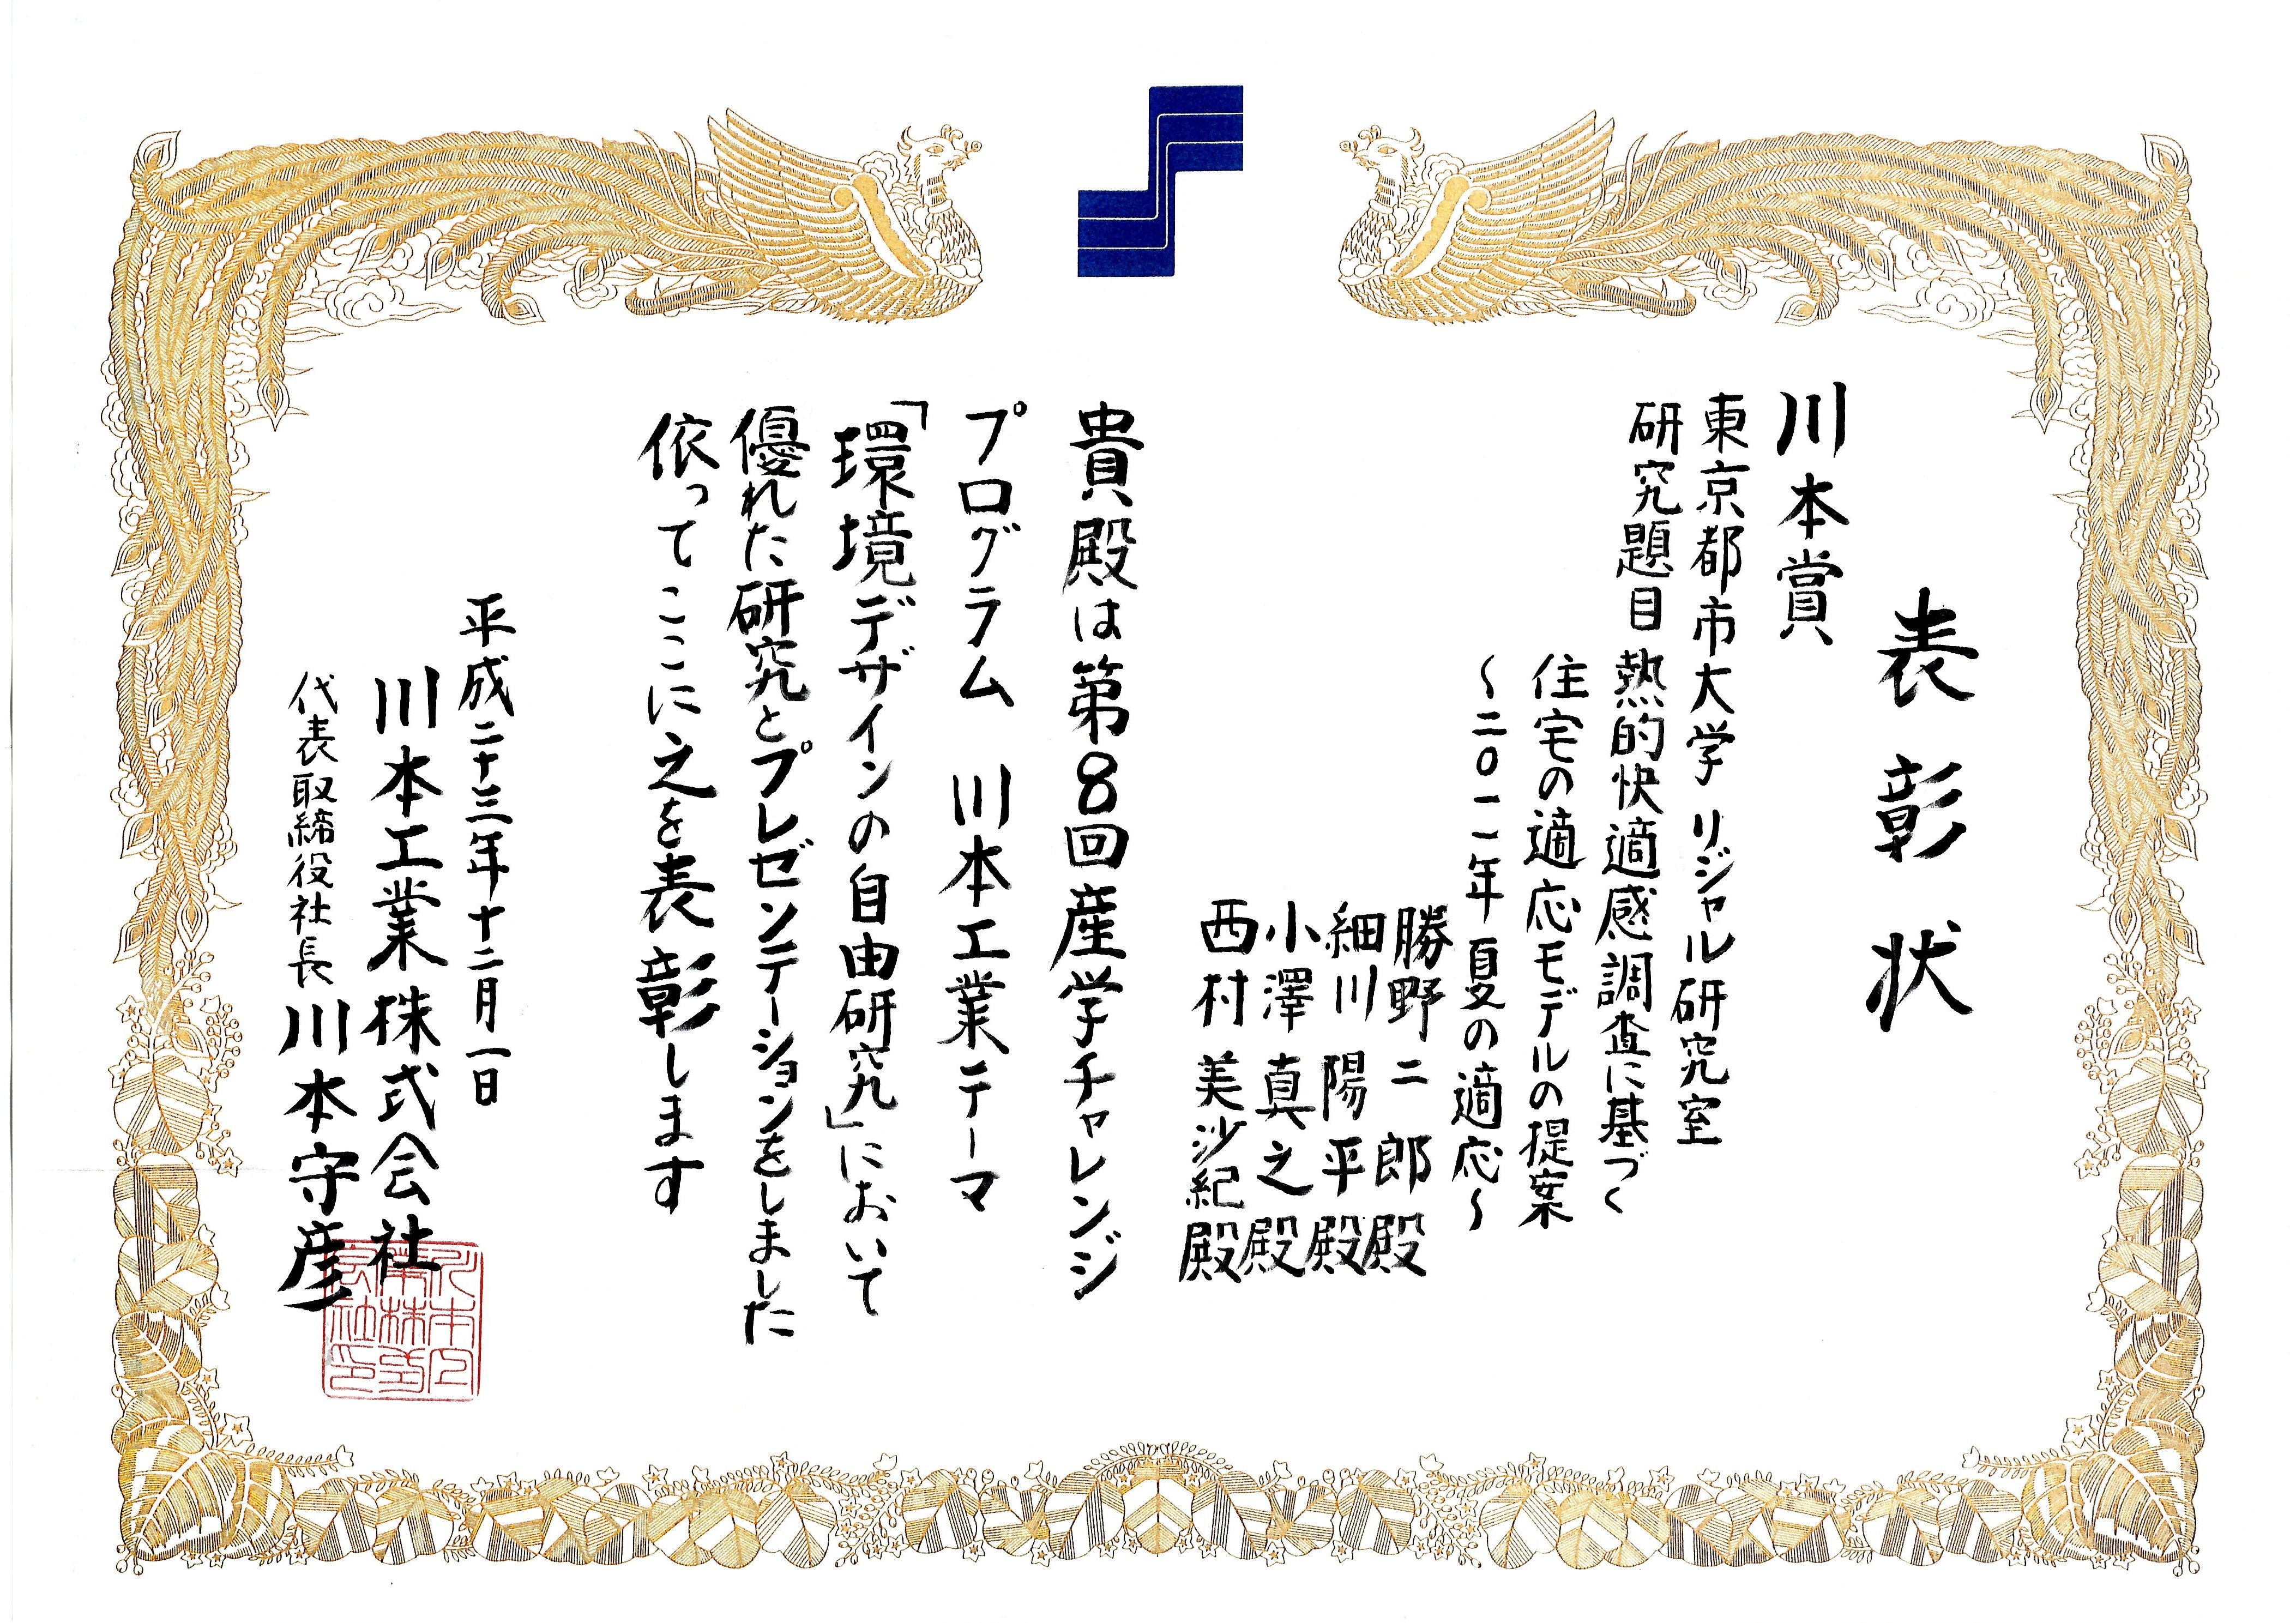 表彰状
川本賞
東京都市大学 リジャル研究室
研究題目 熱的快適感調査に基づく
住宅の適応モデルの提案
~二〇一一年夏の適応~
勝野二郎殿
細川陽平殿
小澤真之殿
西村美沙紀殿
貴殿は第8回産学チャレンジ
プログラム 川本工業テーマ
「環境デザインの自由研究」において
優れた研究とプレゼンテーションをしました
依ってここに之を表彰します
平成二十三年十二月一日
川本工業株式会社
代表取締役社長 川本守彦